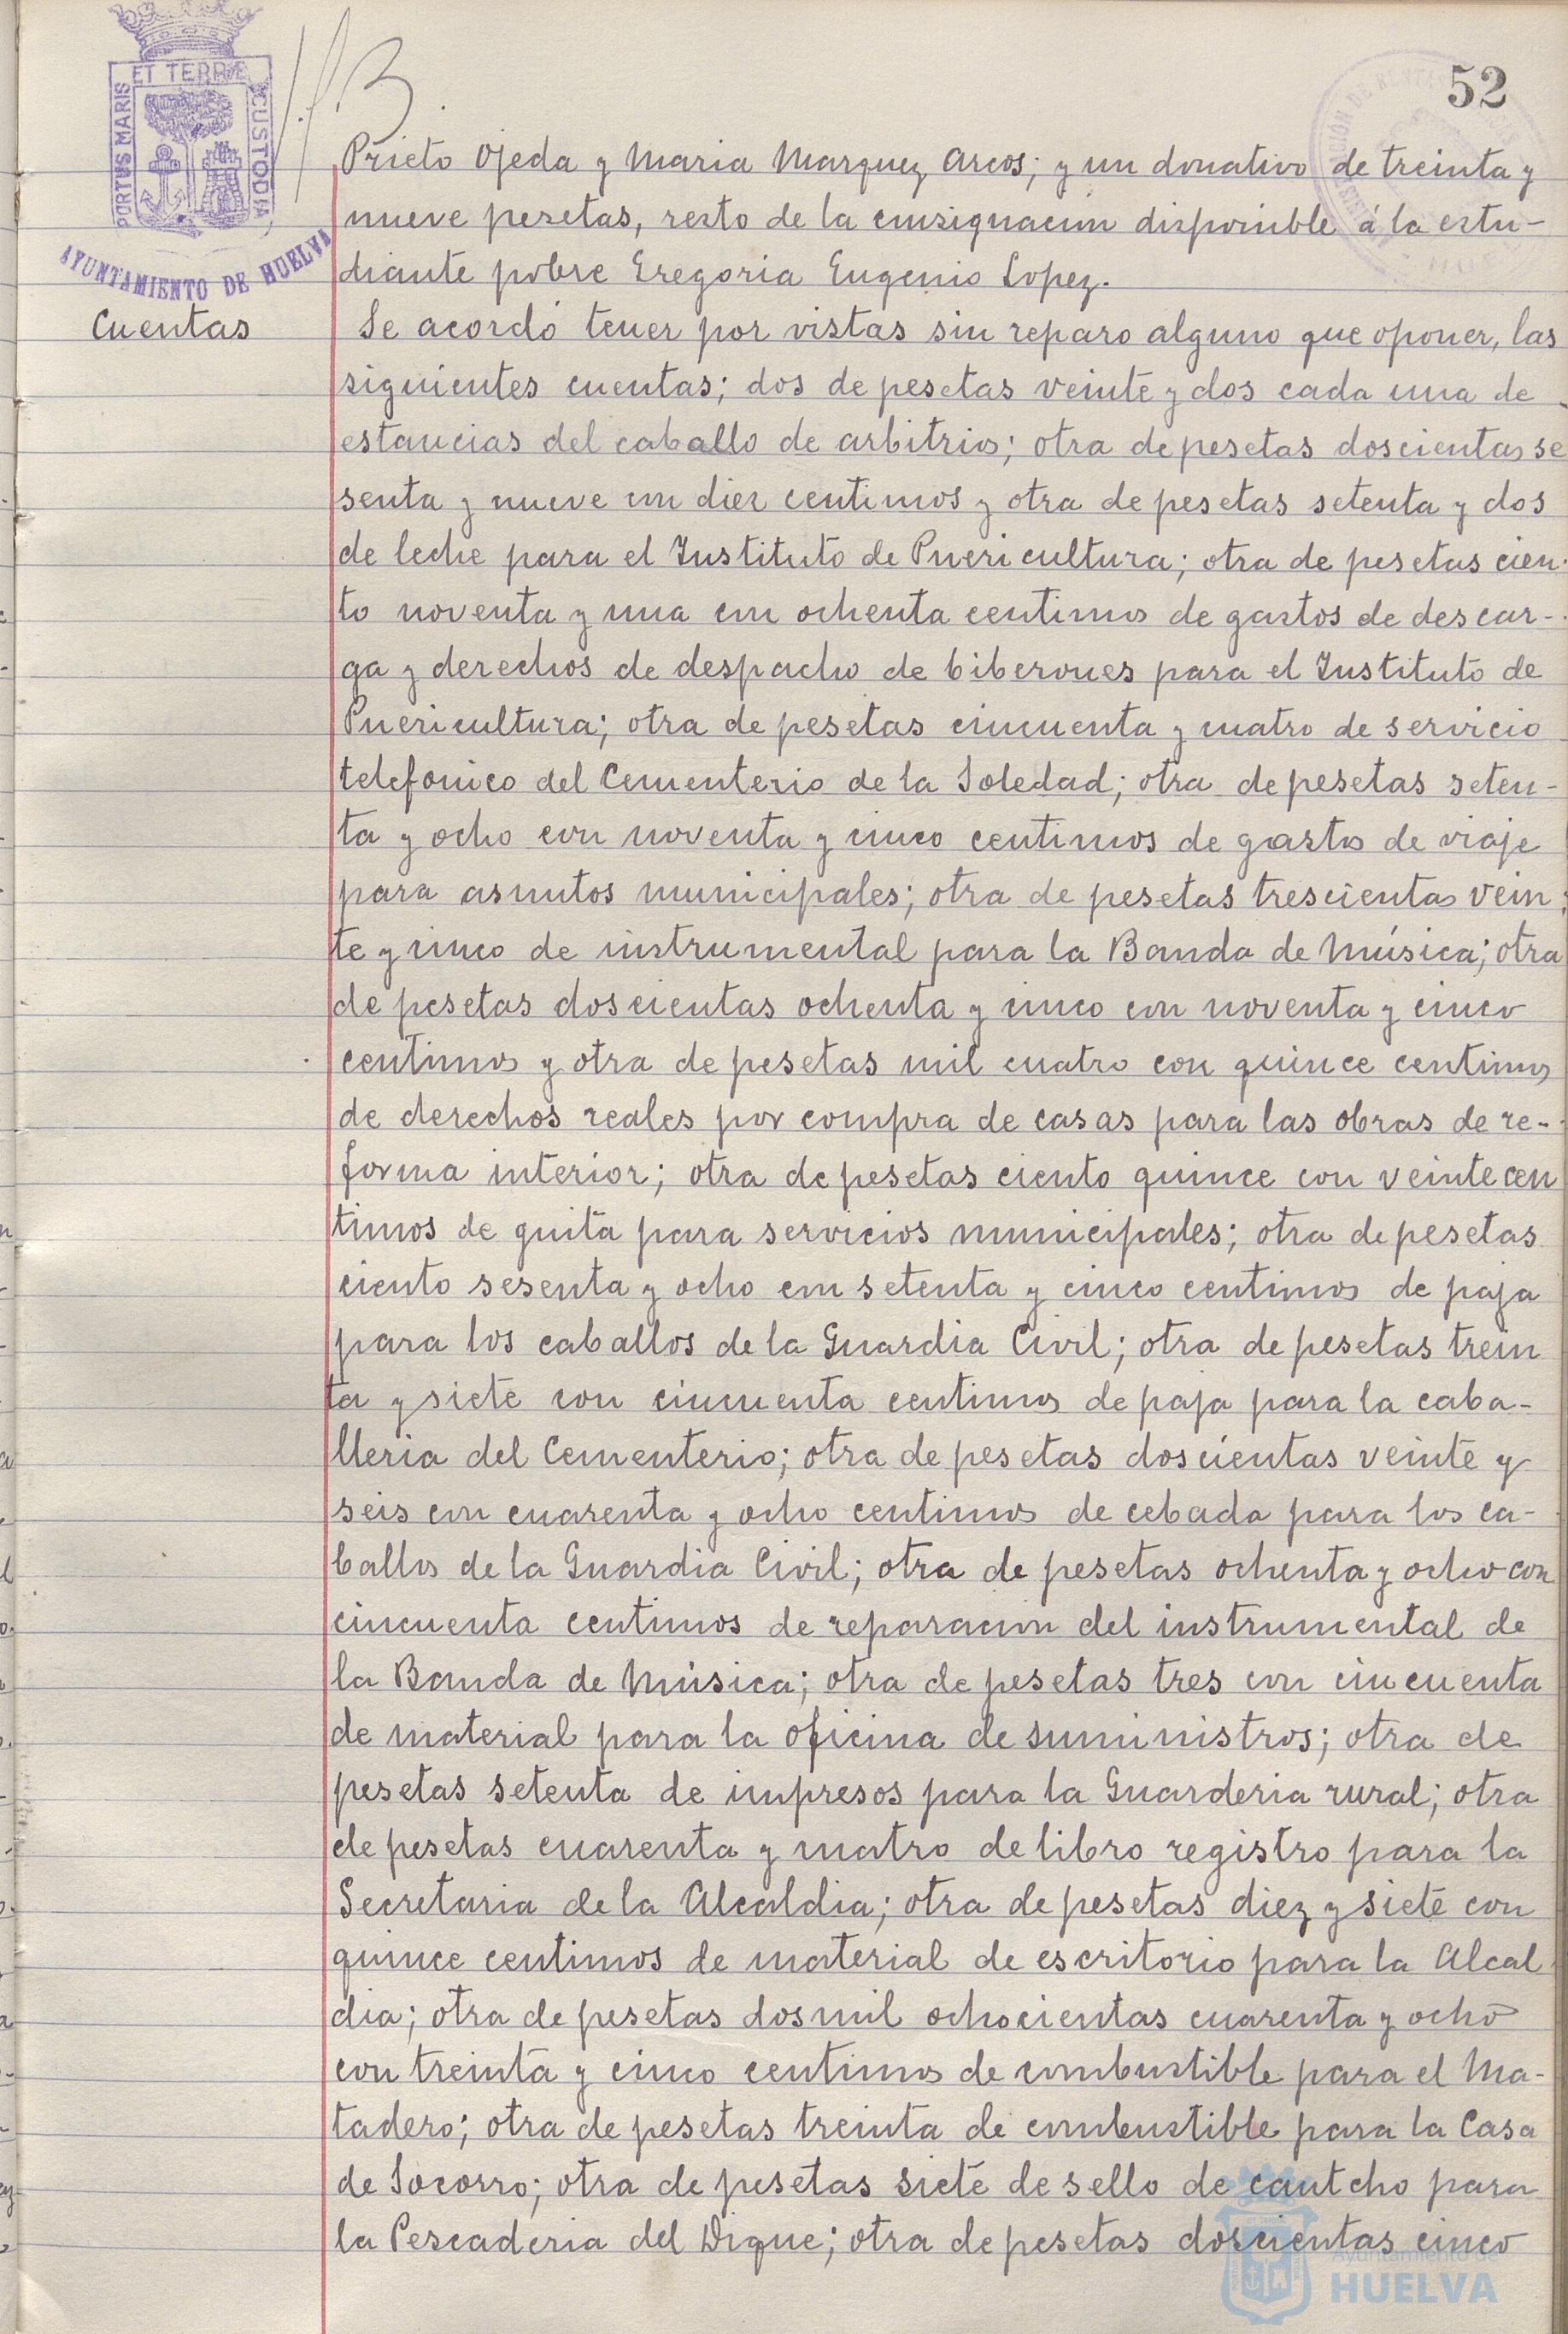 52
ET TERRÆ
PORTUS MARIS
CUSTODIA
AYUNTAMIENTO DE HUELVA
Prieto Ojeda y Maria Marquez Arcos; y un donativo de treinta y
nueve pesetas, resto de la consignacion disponible á la estu-
diante pobre Gregoria Eugenio Lopez.
Cuentas
Se acordó tener por vistas sin reparo alguno que oponer, las
siguientes cuentas; dos de pesetas veinte y dos cada una de
estancias del caballo de arbitrios; otra de pesetas doscientas se
senta y nueve con diez centimos y otra de pesetas setenta y dos
de leche para el Instituto de Puericultura; otra de pesetas cien-
to noventa y una con ochenta centimos de gastos de descar-
ga y derechos de despacho de biberones para el Instituto de
Puericultura; otra de pesetas cincuenta y cuatro de servicio
telefonico del Cementerio de la Soledad; otra de pesetas seten-
ta y ocho con noventa y cinco centimos de gastos de viaje
para asuntos municipales; otra de pesetas trescientas vein
te y cinco de instrumental para la Banda de Música; otra
de pesetas doscientas ochenta y cinco con noventa y cinco
centimos y otra de pesetas mil cuatro con quince centimos
de derechos reales por compra de casas para las obras de re-
forma interior; otra de pesetas ciento quince con veinte cen
timos de guita para servicios municipales; otra de pesetas
ciento sesenta y ocho con setenta y cinco centimos de paja
para los caballos de la Guardia Civil; otra de pesetas trein
ta y siete con cincuenta centimos de paja para la caba-
lleria del Cementerio; otra de pesetas doscientas veinte y
seis con cuarenta y ocho centimos de cebada para los ca-
ballos de la Guardia Civil; otra de pesetas ochenta y ocho con
cincuenta centimos de reparacion del instrumental de
la Banda de Música; otra de pesetas tres con cincuenta
de material para la oficina de suministros; otra de
pesetas setenta de impresos para la Guarderia rural; otra
de pesetas cuarenta y cuatro de libro registro para la
Secretaria de la Alcaldia; otra de pesetas diez y siete con
quince centimos de material de escritorio para la Alcal
dia; otra de pesetas dos mil ochocientas cuarenta y ocho
con treinta y cinco centimos de combustible para el Ma-
tadero; otra de pesetas treinta de combustible para la Casa
de Socorro; otra de pesetas siete de sello de cautcho para
la Pescaderia del Dique; otra de pesetas doscientas cinco
Ayuntamiento de
HUELVA